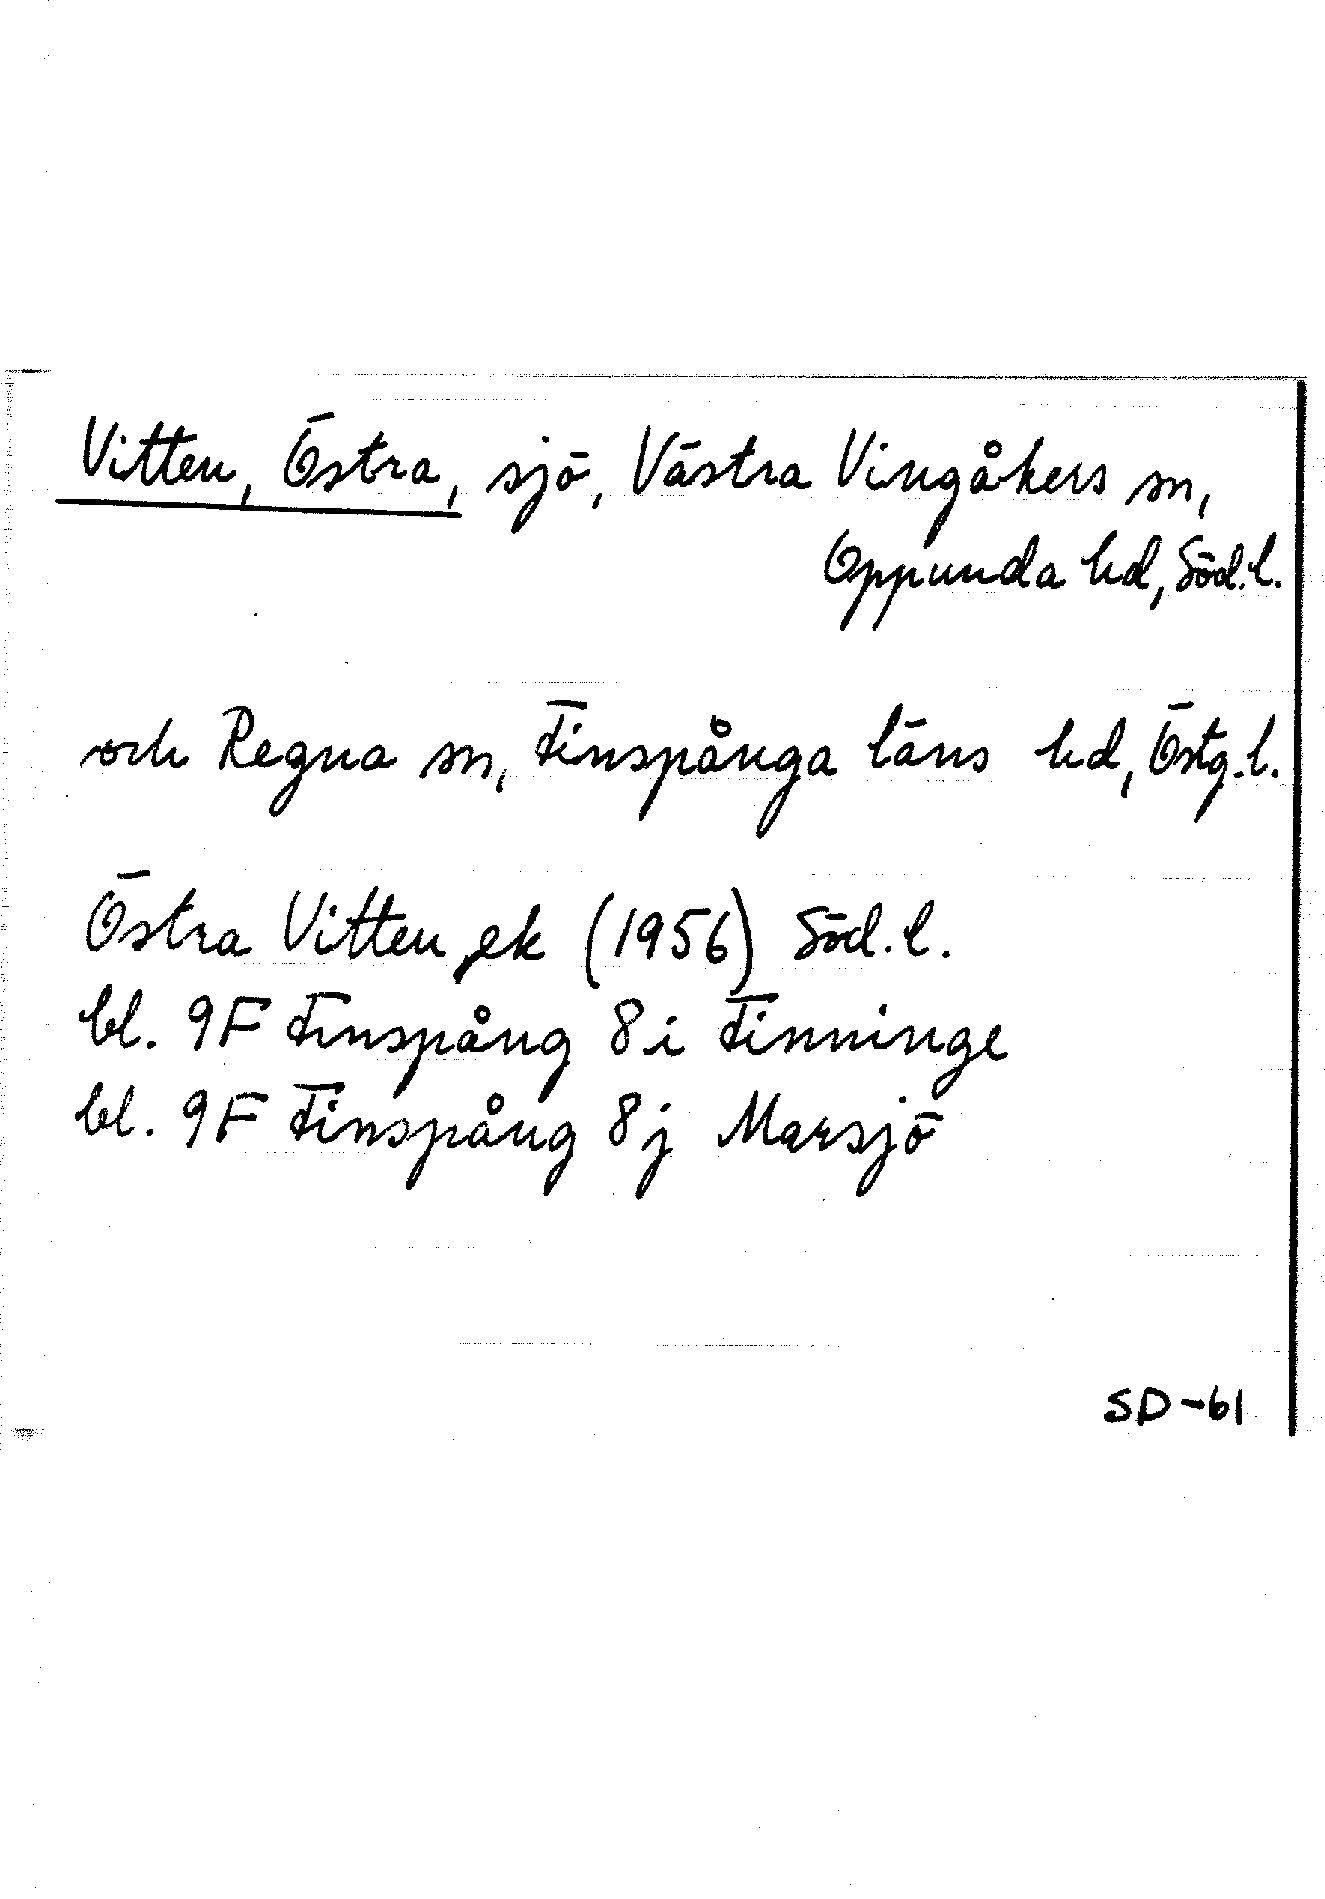 Vitten, Östra, sjö, Västra Vingåkers sn,
Oppunda hd, Söd.l.
och Regna sn, Finspånga läns hd, Östg.l.
Östra Vitten, ek (1956) Söd.l.
bl. 9F Finspång 8i Finninge
bl. 9F Finspång 8j Marsjö
SD-61